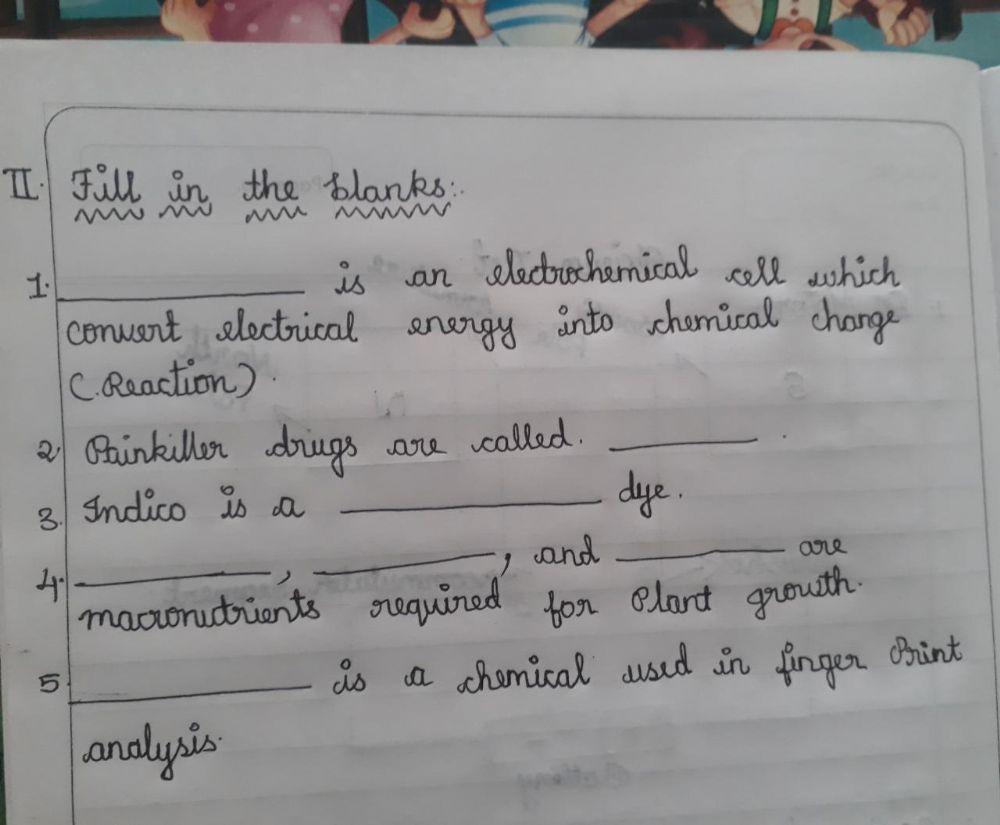 II. Fill in the blanks:.
1. __________ is an electrochemical cell which
convert electrical energy into chemical change
(.Reaction).
2. Painkiller drugs are called. __________ .
3. Indico is a __________ dye.
4. __________, __________, and __________ are
macronutrients required for Plant growth.
5 __________ is a chemical used in finger Print
analysis.